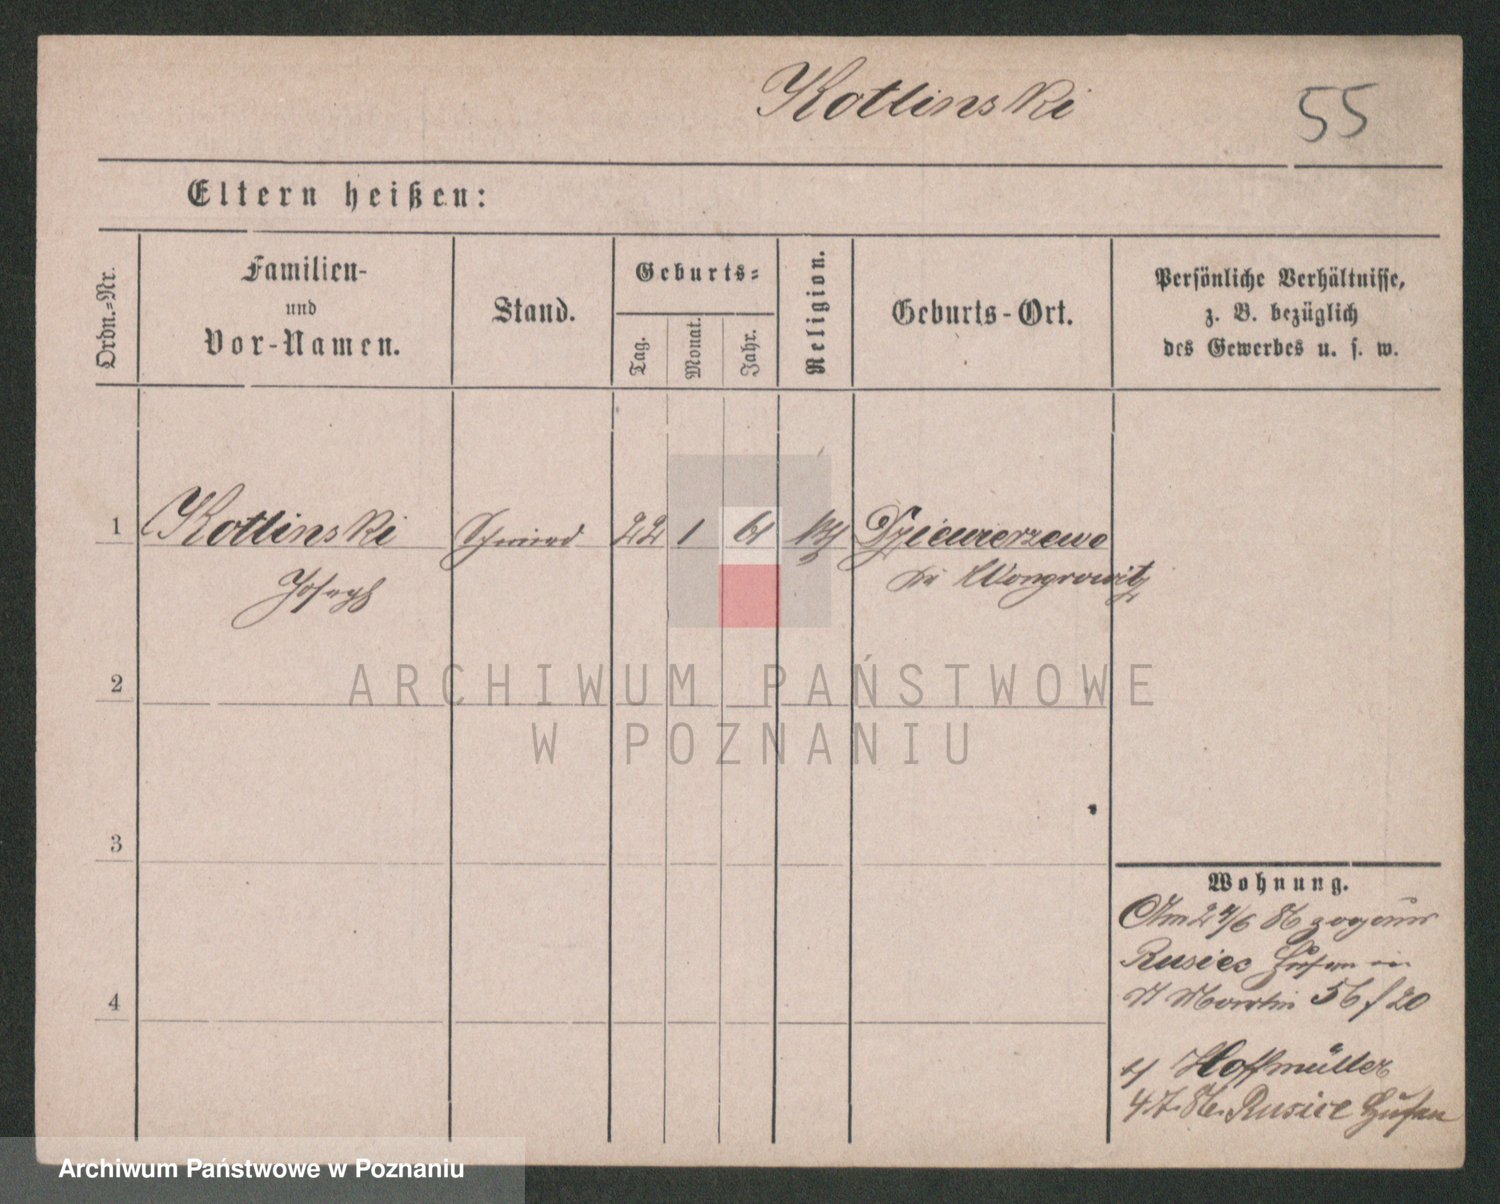 Kotlinski
55
Eltern heißen:
Ordn.-Nr.
Familien-
und
Vor-Namen.
Stand.
Geburts-
Tag.
Monat.
Jahr.
Religion.
Geburts-Ort.
Persönliche Verhältnisse,
z. B. bezüglich
des Gewerbes u. s. w.
1 Kotlinski Schmied 22 1 61 Dziewierzewo
Joseph Wongrowitz
2
ARCHIWUM PAŃSTWOWE
W POZNANIU
3
Wohnung.
Am 24/6 86 zog aus
Rusiec
Martin 56 f 20
4
Hoffmüller
4.7.86. Rusiec
Archiwum Państwowe w Poznaniu